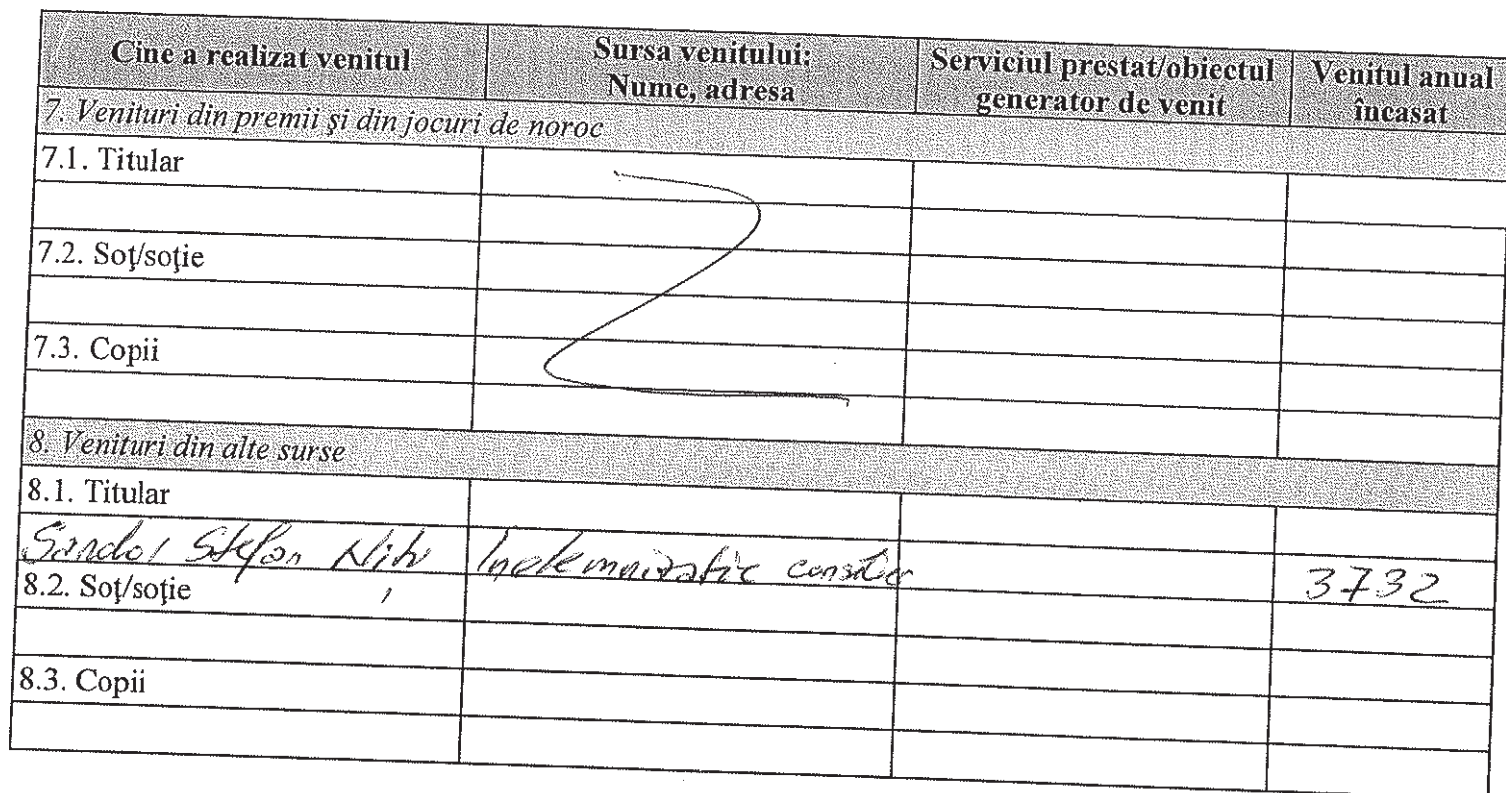 Cine a realizat venitul
Sursa venitului:
Nume, adresa
Serviciul prestat/obiectul
generator de venit
Venitul anual
încasat
7. Venituri din premii şi din jocuri de noroc
7.1. Titular
7.2. Soţ/soţie
7.3. Copii
8. Venituri din alte surse
8.1. Titular
Sandor Stefan Indemnizatie consilier 3732
8.2. Soţ/soţie
8.3. Copii